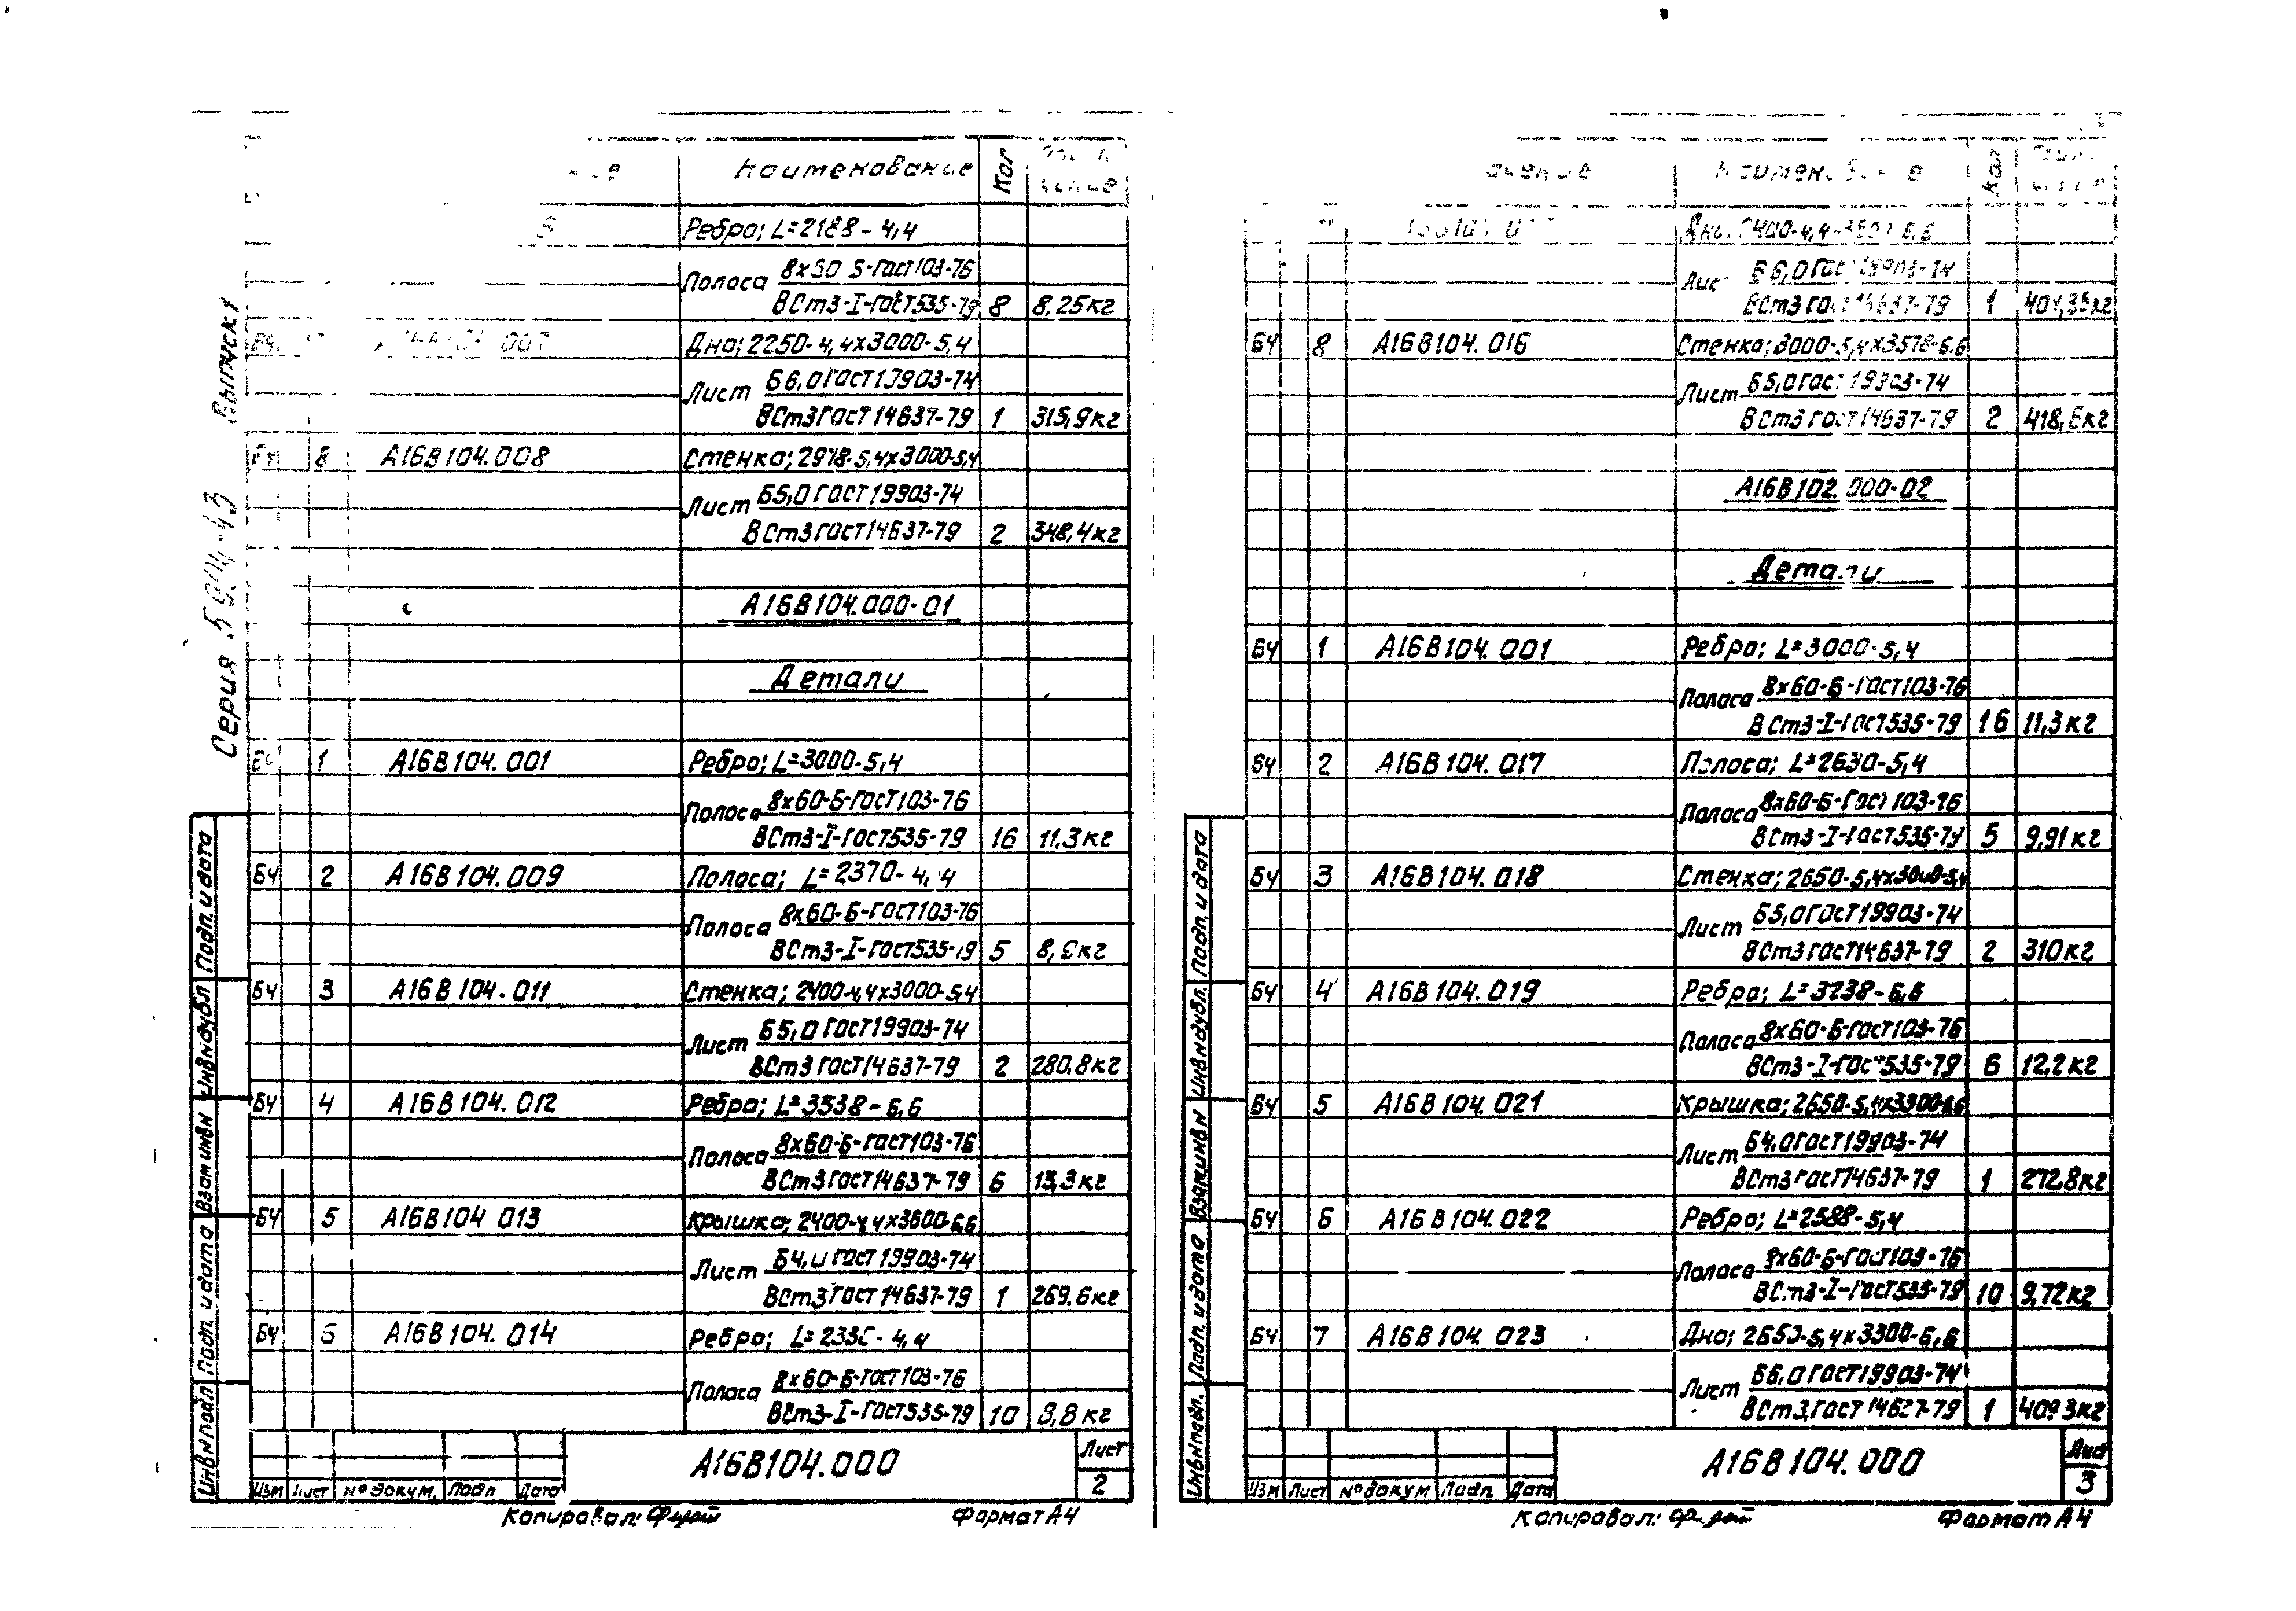 Наименование Кол
Ребро; L=2188-4,4
Полоса 8х50
ВСт3-I-гост535-79 8 8,25кг
Дно; 2250-4,4х3000-5,4
Лист Б6,0гост19903-74
ВСт3гост14637-79 1 315,9кг
8 А16В104.008 Стенка; 2978-5,4х3000-5,4
Лист Б5,0гост19903-74
ВСт3гост14637-79 2 348,4кг
А16В104.000-01
Детали
1 А16В104.001 Ребро; L=3000-5,4
Полоса 8х60-Б-гост103-76
ВСт3-I-гост535-79 16 11,3кг
БЧ 2 А16В104.009 Полоса; L=2370-4,4
Полоса 8х60-Б-гост103-76
ВСт3-I-гост535-79 5
БЧ 3 А16В104.011 Стенка; 2400-4,4х3000-5,4
Лист Б5,0гост19903-74
ВСт3гост14637-79 2 280,8кг
БЧ 4 А16В104.012 Ребро; L=3538-6,6
Полоса 8х60-Б-гост103-76
ВСт3гост14637-79 6 13,3кг
БЧ 5 А16В104 013 Крышка; 2400-4,4х3600-6,6
Лист Б4,0гост19903-74
ВСт3гост14637-79 1 269,6кг
БЧ 6 А16В104.014 Ребро;
Полоса 8х60-Б-гост103-76
ВСт3-I-гост535-79 10 8,8кг
Серия 5.904-43 Выпуск1
Подп. и дата
Инв.№дубл
Взам инв№
Подп. и дата
Инв№подл
А16В104.000
Лист
2
Изм Лист №докум. Подп Дата
Копировал:
Формат А4
Кол
Б6,0гост19903-74
ВСт3гост14637-79 1 401,35кг
БЧ 8 А16В104.016 Стенка; 3000-5,4х3578-6.6
Лист Б5,0гост19903-74
ВСт3гост14637-79 2 418,6кг
А16В102.000-02
Детали
БЧ 1 А16В104.001 Ребро; L=3000-5,4
Полоса 8х60-Б-гост103-76
ВСт3-I-гост535-79 16 11,3кг
БЧ 2 А16В104.017 Полоса; L=2630-5,4
Полоса 8х60-Б-гост103-76
ВСт3-I-гост535-79 5 9,91кг
БЧ 3 А16В104.018 Стенка; 2650-5,4х3000-5,4
Лист Б5,0гост19903-74
ВСт3гост14637-79 2 310кг
БЧ 4 А16В104.019 Ребро; L=3238-6,6
Полоса 8х60-Б-гост103-76
ВСт3-I-гост535-79 6 12,2кг
БЧ 5 А16В104.021 Крышка; 2650-5,4х3300-6,6
Лист Б4,0гост19903-74
ВСт3гост14637-79 1 272,8кг
БЧ 6 А16В104.022 Ребро; L=2588-5,4
Полоса 8х60-Б-гост103-76
ВСт3-I-гост535-79 10 9,72кг
БЧ 7 А16В104.023 Дно; 2650-5,4х3300-6,6
Лист Б6,0гост19903-74
ВСт3.гост14637-79 1 409,3кг
Подп. и дата
Инв.№дубл.
Взам инв№
Подп. и дата
Инв№подл.
А16В104.000
Лист
3
Изм Лист №докум Подп. Дата
Копировал:
Формат А4